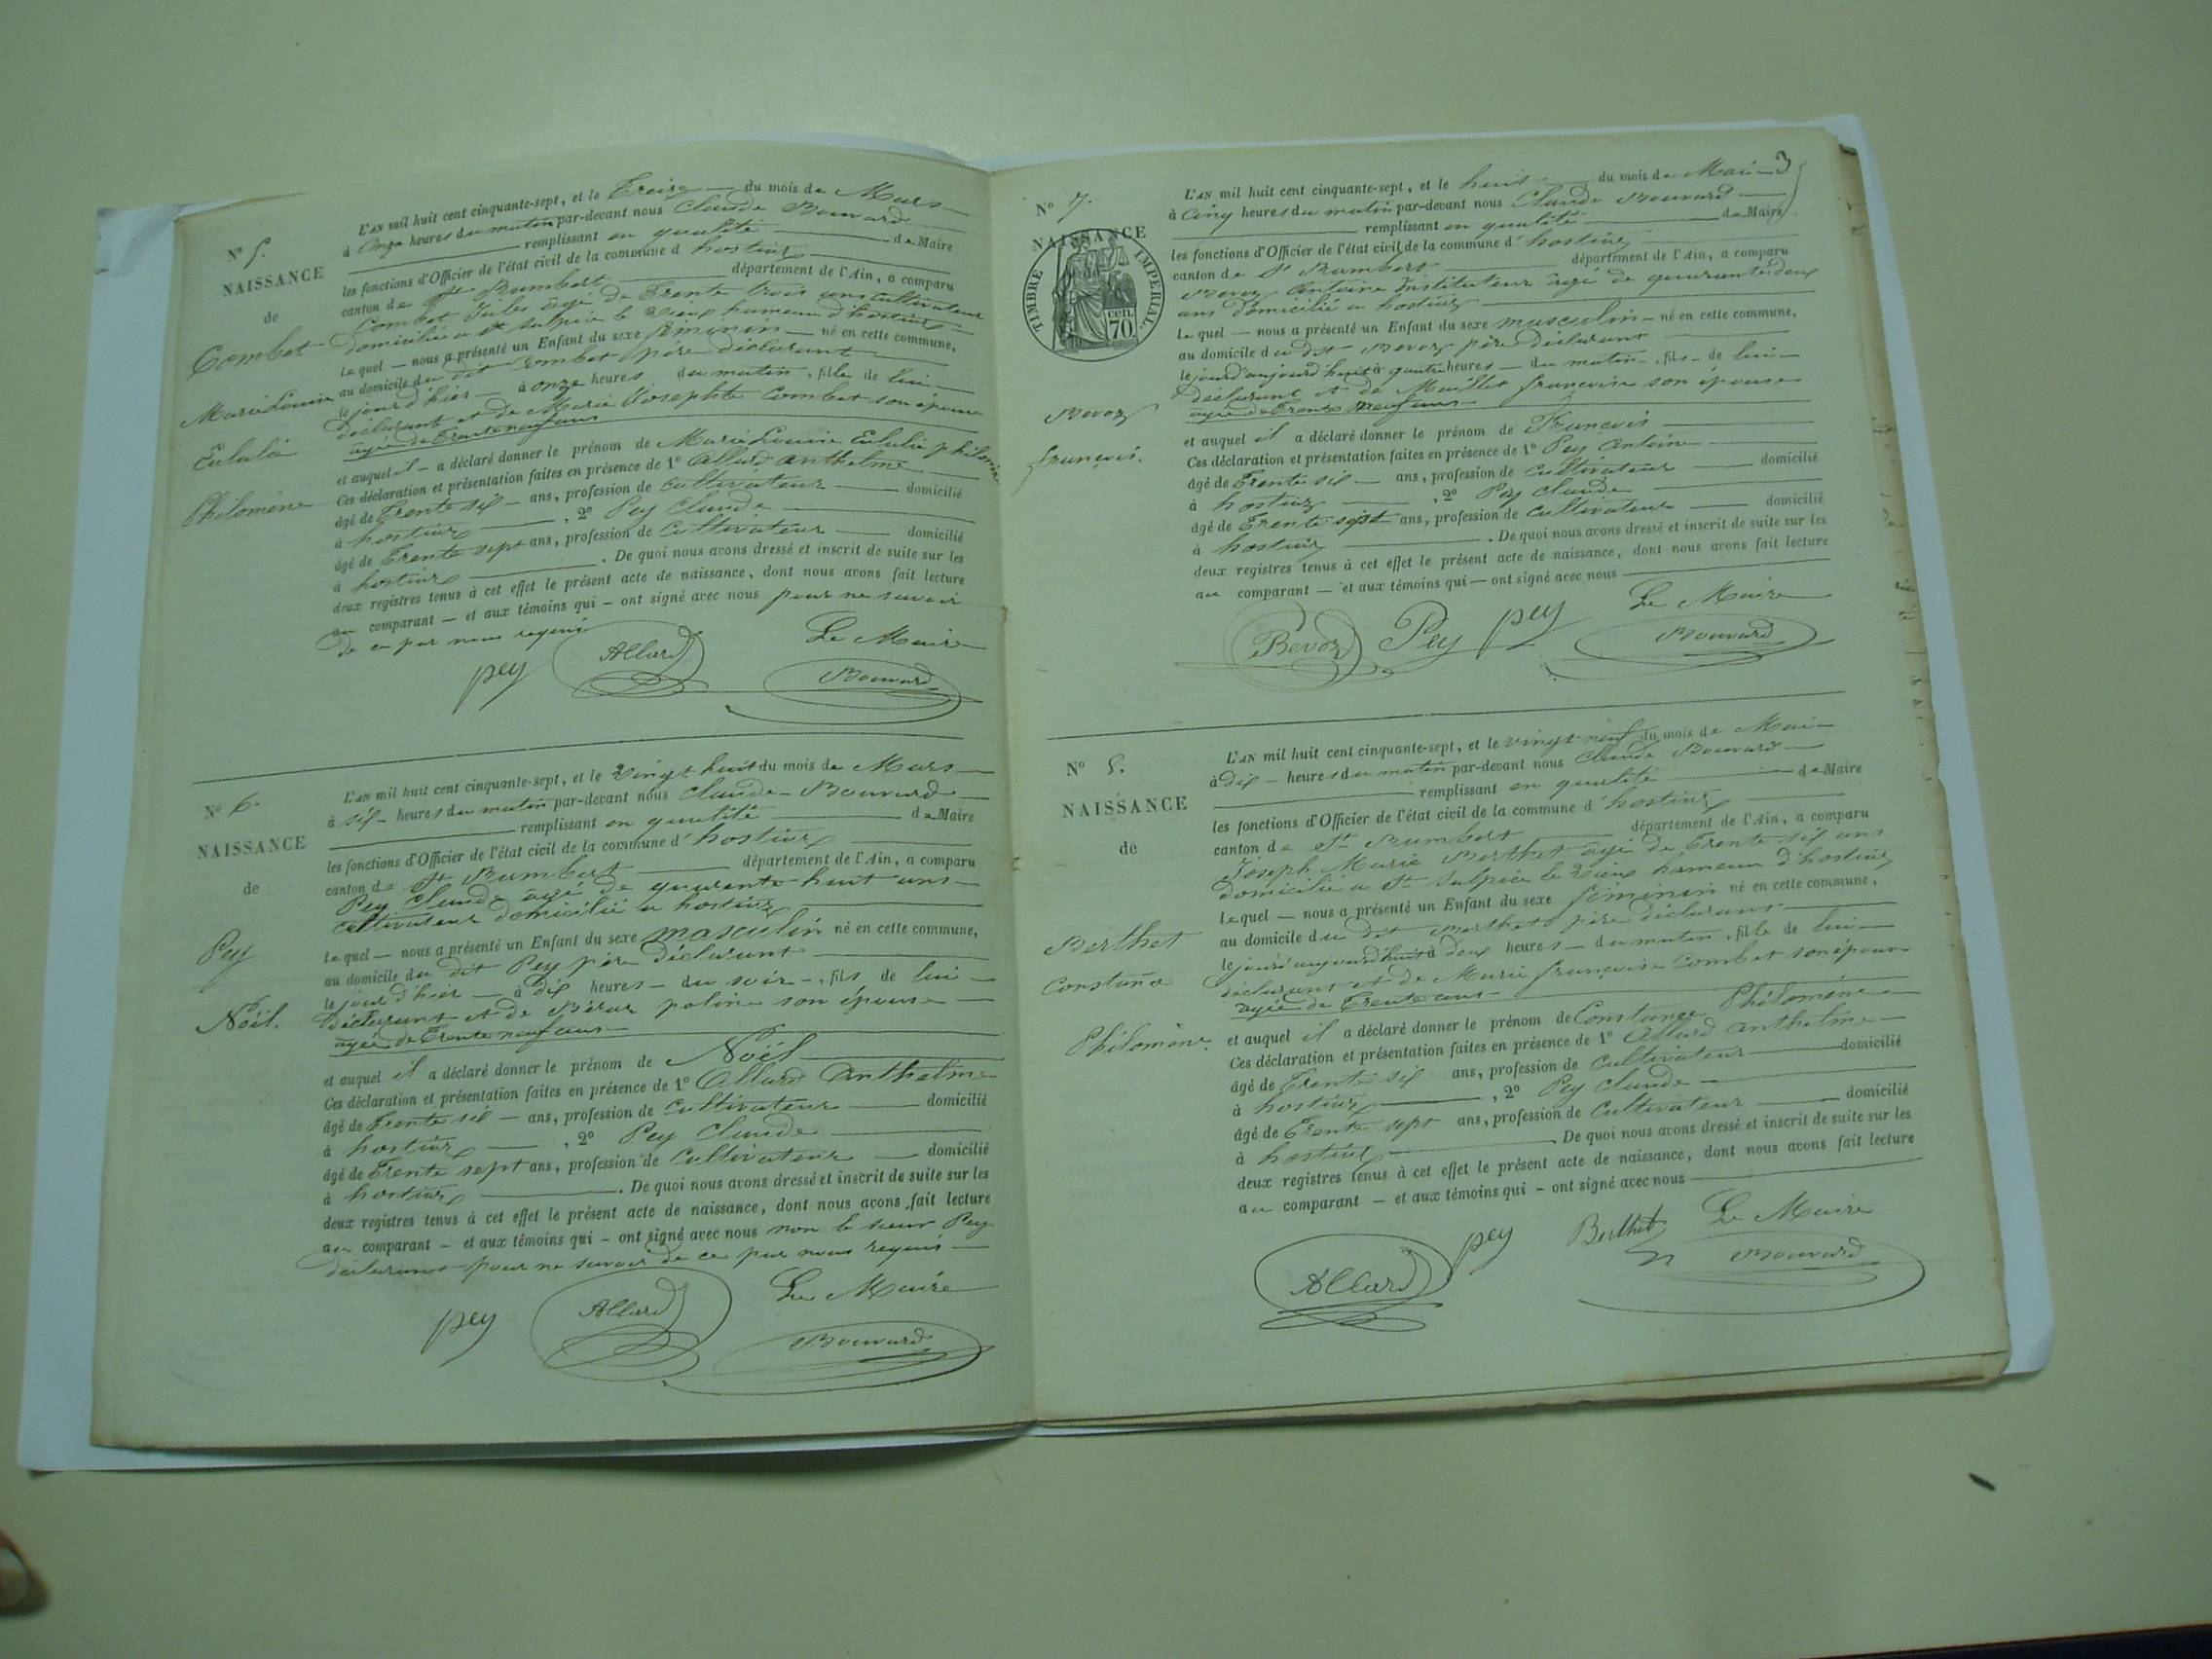 N° 5.
NAISSANCE
de
Combet
Marie Louise
Eulalie
Philomène
L'AN mil huit cent cinquante-sept, et le Treize — du mois de Mars —
à Onze heures du matin par-devant nous Claude Bouvard
remplissant en qualité — de Maire
les fonctions d'Officier de l'état civil de la commune d'hostiaz
canton de St Rambert — département de l'Ain, a comparu
Combet Jules âgé de Trente trois ans cultivateur
domicilié a St sulpice le vieux hameau d'hostiaz
Le quel — nous a présenté un Enfant du sexe féminin — né en cette commune,
au domicile du dit Combet père déclarant —
le jour d'hier — à onze heures du matin, fille de lui —
déclarant et de Marie Josephte Combet son épouse
agée de Trente neuf ans
et auquel il — a déclaré donner le prénom de Marie Louise Eulalie philomène
Ces déclaration et présentation faites en présence de 1° Allard anthelme —
âgé de Trente six — ans, profession de cultivateur — domicilié
à hostiaz — , 2° Pey Claude —
âgé de Trente sept ans, profession de Cultivateur — domicilié
à hostiaz — . De quoi nous avons dressé et inscrit de suite sur les
deux registres tenus à cet effet le présent acte de naissance, dont nous avons fait lecture
au comparant — et aux témoins qui — ont signé avec nous pour ne savoir
de ce par nous requis
Le Maire
pey Allard Bouvard
N° 6.
NAISSANCE
de
Pey
Noël.
L'AN mil huit cent cinquante-sept, et le Vingt huit du mois de Mars —
à six — heures du matin par-devant nous Claude — Bouvard —
remplissant en qualité — de Maire
les fonctions d'Officier de l'état civil de la commune d'hostiaz —
canton de St Rambert — département de l'Ain, a comparu
Pey Claude agé de quarante huit ans —
cultivateur domicilié a hostiaz —
Le quel — nous a présenté un Enfant du sexe masculin né en cette commune,
au domicile du dit Pey père déclarant —
le jour d'hier — à dix heures — du soir —, fils de lui —
déclarant et de poline son épouse —
agée de Trente neuf ans —
et auquel il a déclaré donner le prénom de Noël —
Ces déclaration et présentation faites en présence de 1° Allard Anthelme
âgé de Trente six — ans, profession de Cultivateur — domicilié
à hostiaz — , 2° Pey Claude —
âgé de Trente sept ans, profession de Cultivateur — domicilié
à hostiaz — . De quoi nous avons dressé et inscrit de suite sur les
deux registres tenus à cet effet le présent acte de naissance, dont nous avons fait lecture
au comparant — et aux témoins qui — ont signé avec nous non le sieur Pey
déclarant pour ne savoir de ce par nous requis —
Le Maire
pey Allard Bouvard
3
N° 7.
NAISSANCE
TIMBRE IMPÉRIAL
CEN.
70
Bevoz
françois.
L'AN mil huit cent cinquante-sept, et le huit — du mois de Mai —
à Cinq heures du matin par-devant nous Claude Bouvard —
remplissant en qualité — de Maire
les fonctions d'Officier de l'état civil de la commune d'hostiaz
canton de St Rambert — département de l'Ain, a comparu
Bevoz Antoine Instituteur agé de quarante deux
ans domicilié a hostiaz —
Le quel — nous a présenté un Enfant du sexe masculin — né en cette commune,
au domicile du dit Bevoz père déclarant —
le jour d'aujourd'hui à quatre heures — du matin —, fils — de lui —
déclarant et de Maillet françoise son épouse
agée de Trente neuf ans —
et auquel il a déclaré donner le prénom de François —
Ces déclaration et présentation faites en présence de 1° Pey Antoine —
âgé de Trente six — ans, profession de Cultivateur — domicilié
à hostiaz — , 2° Pey Claude —
âgé de Trente sept ans, profession de Cultivateur — domicilié
à hostiaz — . De quoi nous avons dressé et inscrit de suite sur les
deux registres tenus à cet effet le présent acte de naissance, dont nous avons fait lecture
au comparant — et aux témoins qui — ont signé avec nous —
Le Maire
Bevoz Pey pey Bouvard
N° 8.
NAISSANCE
de
Berthet
Constance
Philomène.
L'AN mil huit cent cinquante-sept, et le vingt-neuf du mois de Mai —
à dix — heures du matin par-devant nous Claude Bouvard —
remplissant en qualité — de Maire
les fonctions d'Officier de l'état civil de la commune d'hostiaz —
canton de St Rambert — département de l'Ain, a comparu
Joseph Marie Berthet agé de Trente six ans
domicilié a St Sulpice le Vieux hameau d'hostiaz
Le quel — nous a présenté un Enfant du sexe féminin né en cette commune,
au domicile du dit Berthet père déclarant —
le jour d'aujourd'hui à deux heures — du matin, fille de lui —
déclarant et de Marie françoise Combet son épouse
agée de Trente ans —
et auquel il a déclaré donner le prénom de Constance Philomène —
Ces déclaration et présentation faites en présence de 1° Allard anthelme —
âgé de Trente six ans, profession de Cultivateur — domicilié
à hostiaz — , 2° Pey Claude —
âgé de Trente sept ans, profession de Cultivateur — domicilié
à hostiaz — . De quoi nous avons dressé et inscrit de suite sur les
deux registres tenus à cet effet le présent acte de naissance, dont nous avons fait lecture
au comparant — et aux témoins qui — ont signé avec nous —
Le Maire
Allard pey Berthet Bouvard